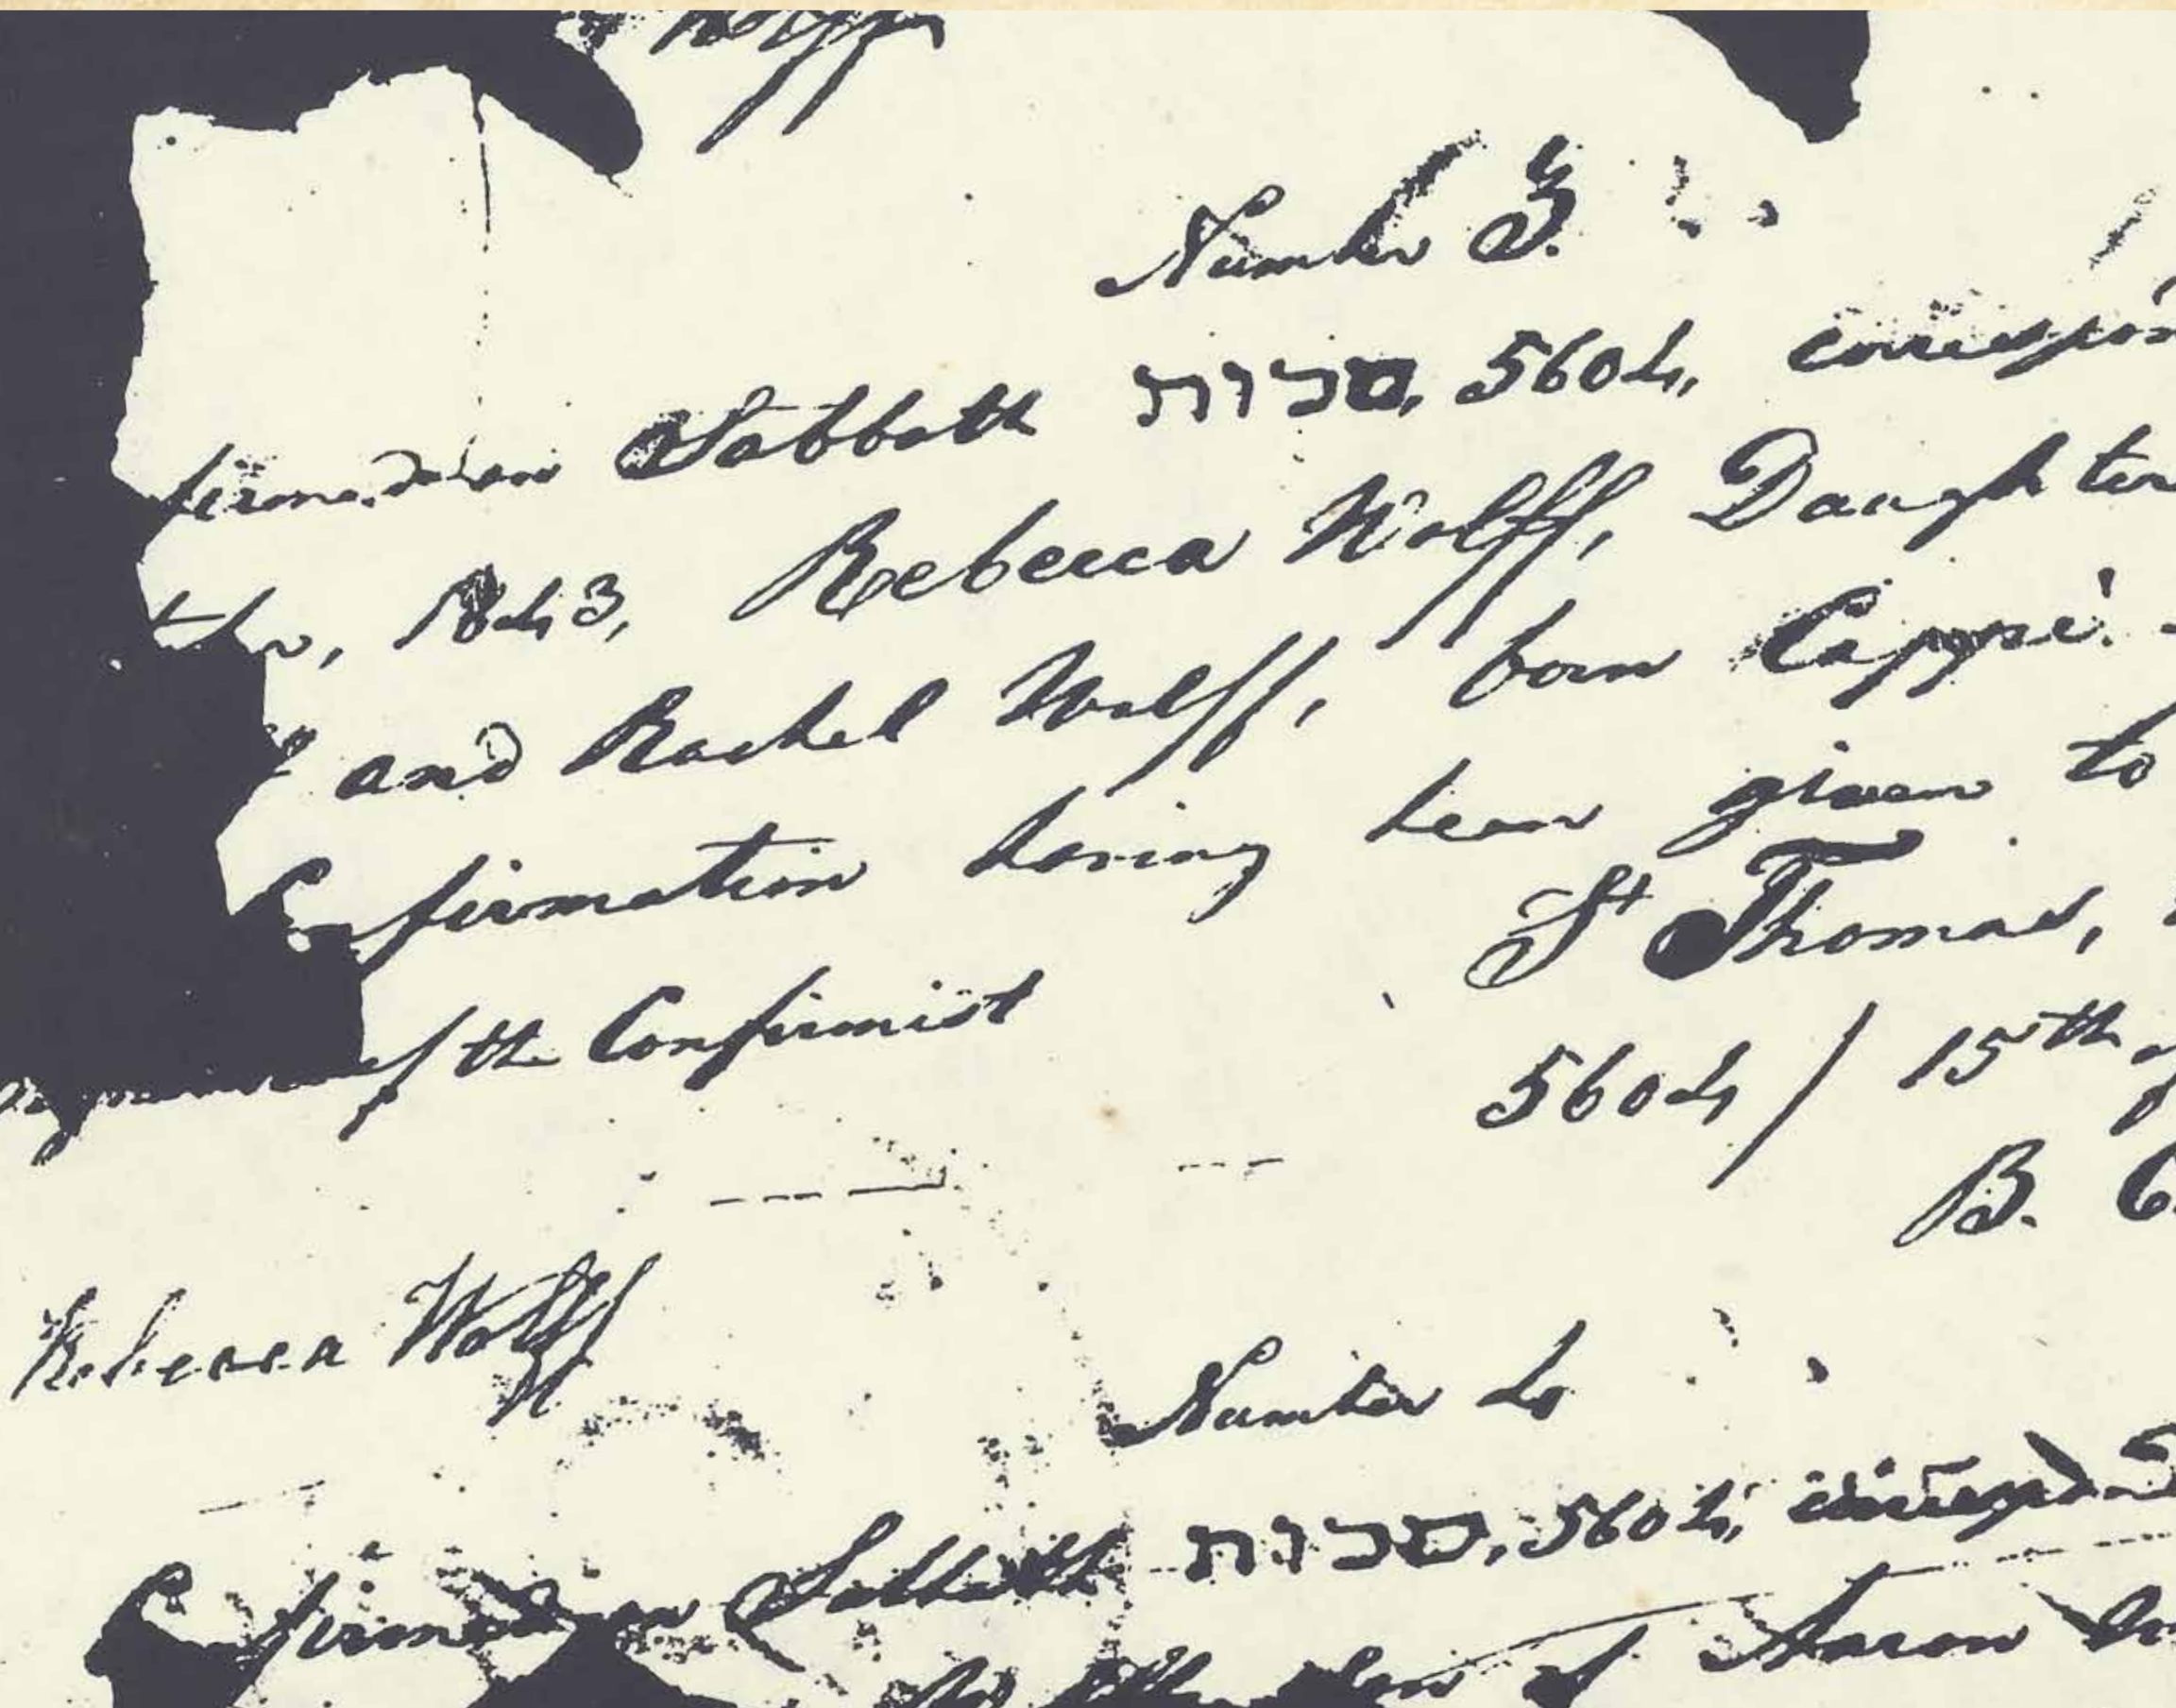 Wolff
Number 3.
firmed on Sabbath סכות, 5604, correspon
ber, 1843, Rebecca Wolff, Daughter
and Rachel Wolff, born Cappé.
Confirmation having been given to
St Thomas,
of the Confirmist
5604 / 15th of
B. C.
Rebecca Wolff
Number 4
Confirmed on Sabbath סכות, 5604, correspond
Son of Aaron